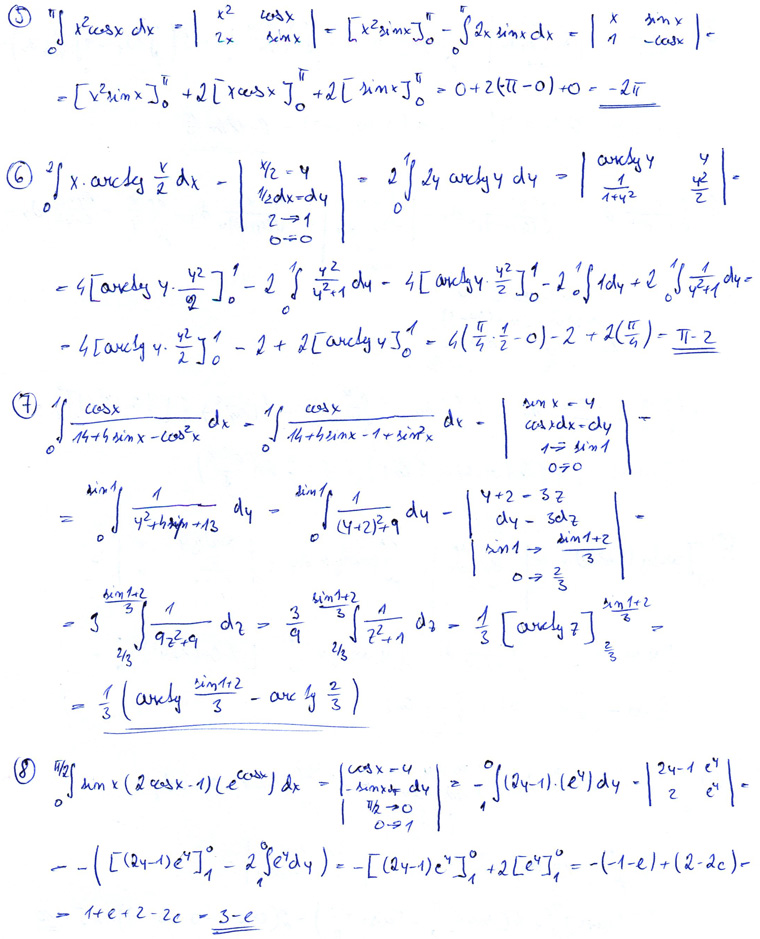 ⑤ ∫₀^π x² cosx dx = | x² cosx ; 2x sinx | = [x² sinx]₀^π - ∫₀^π 2x sinx dx = | x sinx ; 1 -cosx | =
= [x² sinx]₀^π + 2[x cosx]₀^π + 2[sinx]₀^π = 0+2(-π-0)+0 = -2π
⑥ ∫₀² x · arctg x/2 dx = | x/2 = y ; 1/2 dx = dy ; 2→1 ; 0→0 | = 2 ∫₀¹ 2y arctg y dy = | arctg y y ; 1/(1+y²) y²/2 | =
= 4[arctg y · y²/2]₀¹ - 2 ∫₀¹ y²/(y²+1) dy = 4[arctg y · y²/2]₀¹ - 2 ∫₀¹ 1dy + 2 ∫₀¹ 1/(y²+1) dy =
= 4[arctg y · y²/2]₀¹ - 2 + 2[arctg y]₀¹ = 4(π/4 · 1/2 - 0) - 2 + 2(π/4) = π-2
⑦ ∫₀¹ cosx/(14+4sinx-cos²x) dx = ∫₀¹ cosx/(14+4sinx-1+sin²x) dx = | sinx = y ; cosxdx = dy ; 1→sin1 ; 0→0 | =
= ∫₀^(sin1) 1/(y²+4y+13) dy = ∫₀^(sin1) 1/((y+2)²+9) dy = | y+2 = 3z ; dy = 3dz ; sin1 → (sin1+2)/3 ; 0 → 2/3 | =
= 3 ∫_(2/3)^((sin1+2)/3) 1/(9z²+9) dz = 3/9 ∫_(2/3)^((sin1+2)/3) 1/(z²+1) dz = 1/3 [arctg z]_(2/3)^((sin1+2)/3) =
= 1/3 (arctg (sin1+2)/3 - arctg 2/3)
⑧ ∫₀^(π/2) sinx(2cosx-1)(e^cosx) dx = | cosx = y ; -sinxdx = dy ; π/2→0 ; 0→1 | = -∫₁⁰ (2y-1)·(e^y) dy = | 2y-1 e^y ; 2 e^y | =
= -([(2y-1)e^y]₁⁰ - 2∫₁⁰ e^y dy) = -[(2y-1)e^y]₁⁰ + 2[e^y]₁⁰ = -(-1-e)+(2-2e) =
= 1+e+2-2e = 3-e